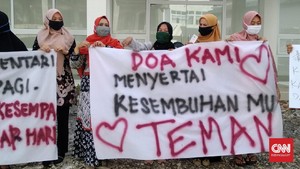 ENTARI
PAGI.
KESEMPA
AR HARI
DOA KAMI
MENYERTAI
KESEMBUHAN MU
TEMAN
CNN
Indonesia